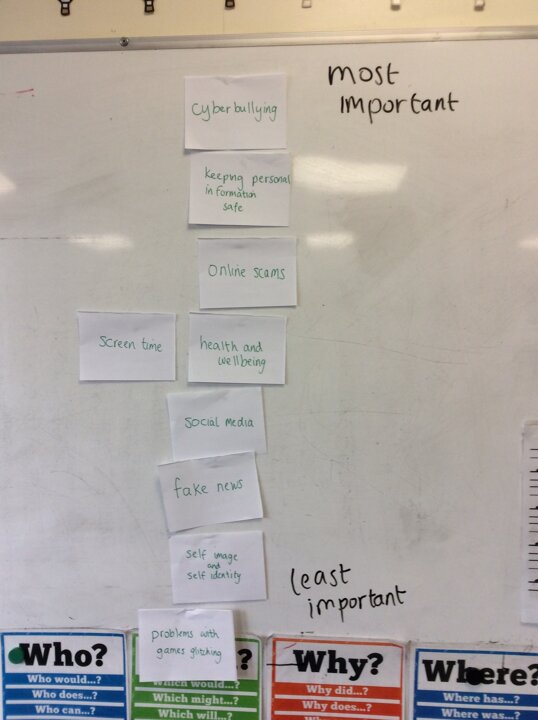 most
important
cyberbullying
keeping personal
information
safe
Online scams
screen time
health and
wellbeing
social media
fake news
self image
and
self identity
least
important
problems with
games glitching
Who?
Who would...?
Who does...?
Who can...?
?
Which would...?
Which might...?
Which will...?
Why?
Why did...?
Why does...?
Where?
Where has...?
Where was...?